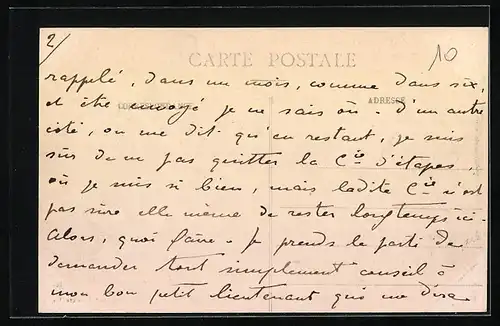 2/
10
CARTE POSTALE
CORRESPONDANCE
ADRESSE
rappelé, dans un mois, comme dans six,
et être envoyé je ne sais où. D'un autre
côté, on me dit qu'en restant, je suis
sûr de ne pas quitter la Cie d'étapes,
où je suis si bien, mais ladite Cie n'est
pas sûre elle même de rester longtemps ici.
Alors, quoi faire. Je prends le parti de
demander tout simplement conseil à
mon bon petit lieutenant qui me dira